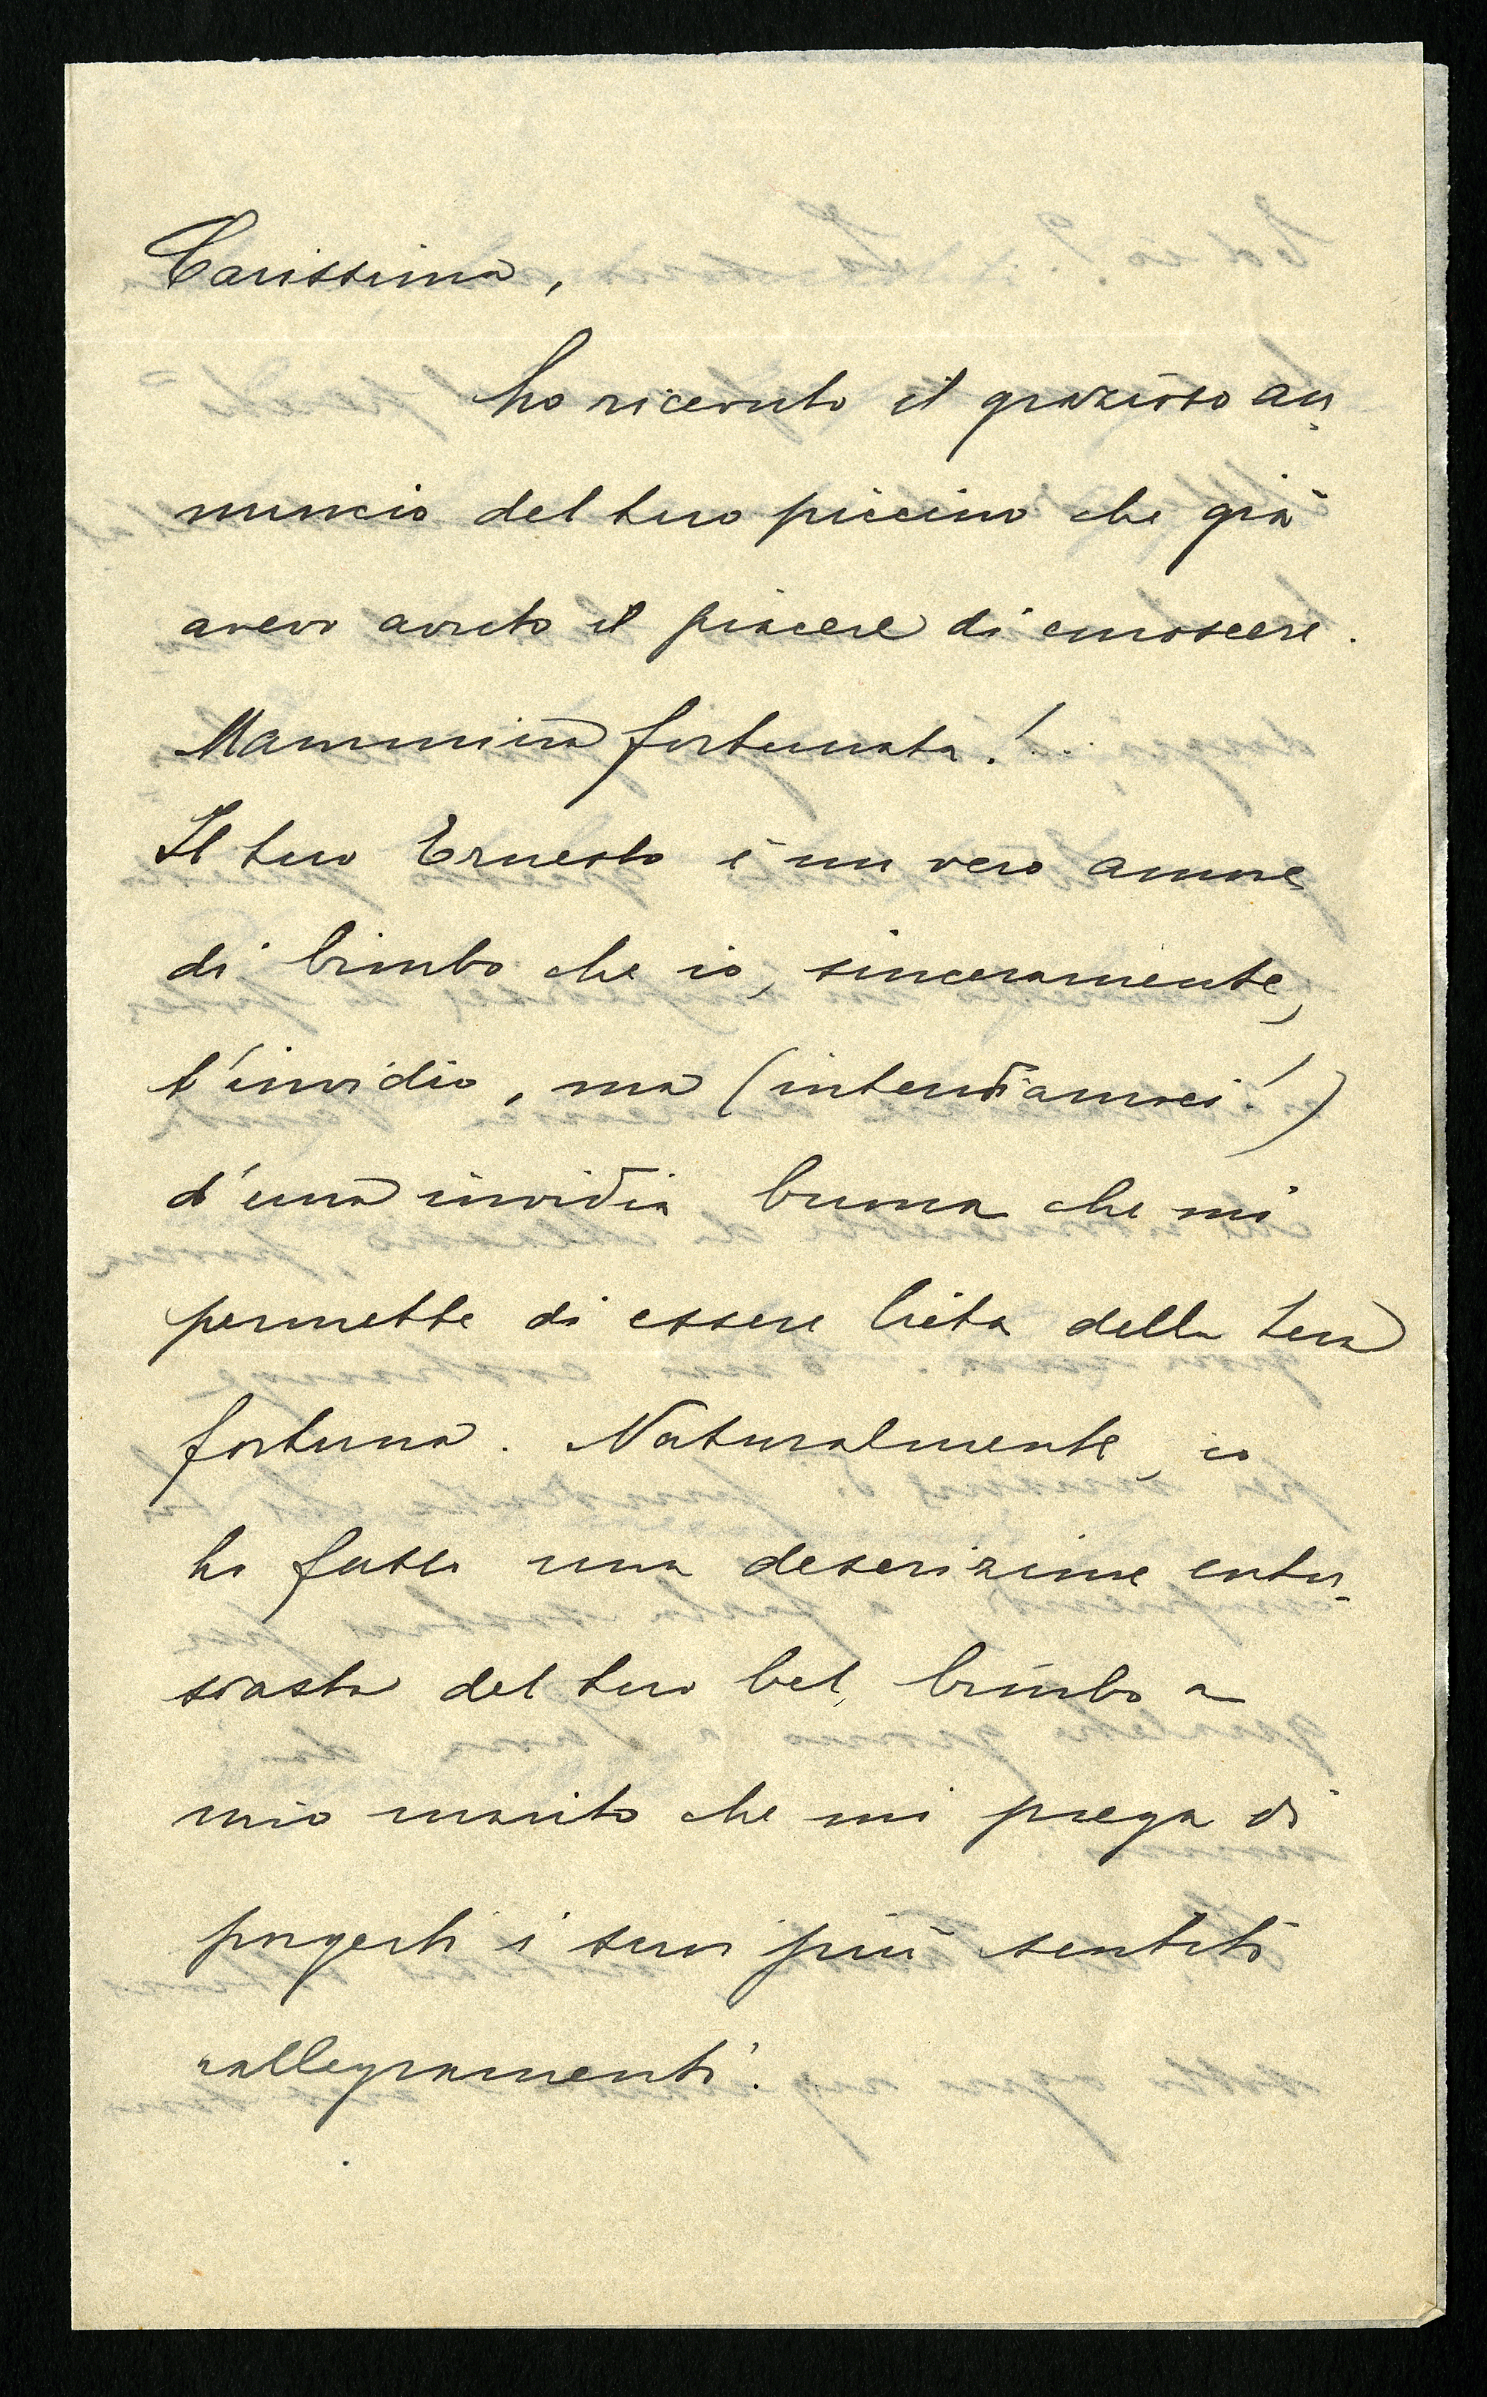 Carissima,
ho ricevuto il grazioso an-
nuncio del tuo piccino che già
avevo avuto il piacere di conoscere.
Mammina fortunata!..
Il tuo Ernesto è un vero amore
di bimbo che io, sinceramente,
t'invidio, ma (intendiamoci!)
d'una invidia buona che mi
permette di essere lieta della tua
fortuna. Naturalmente, io
ho fatto una descrizione entu-
siasta del tuo bel bimbo a
mio marito che mi prega di
porgerti i suoi più sentiti
rallegramenti.